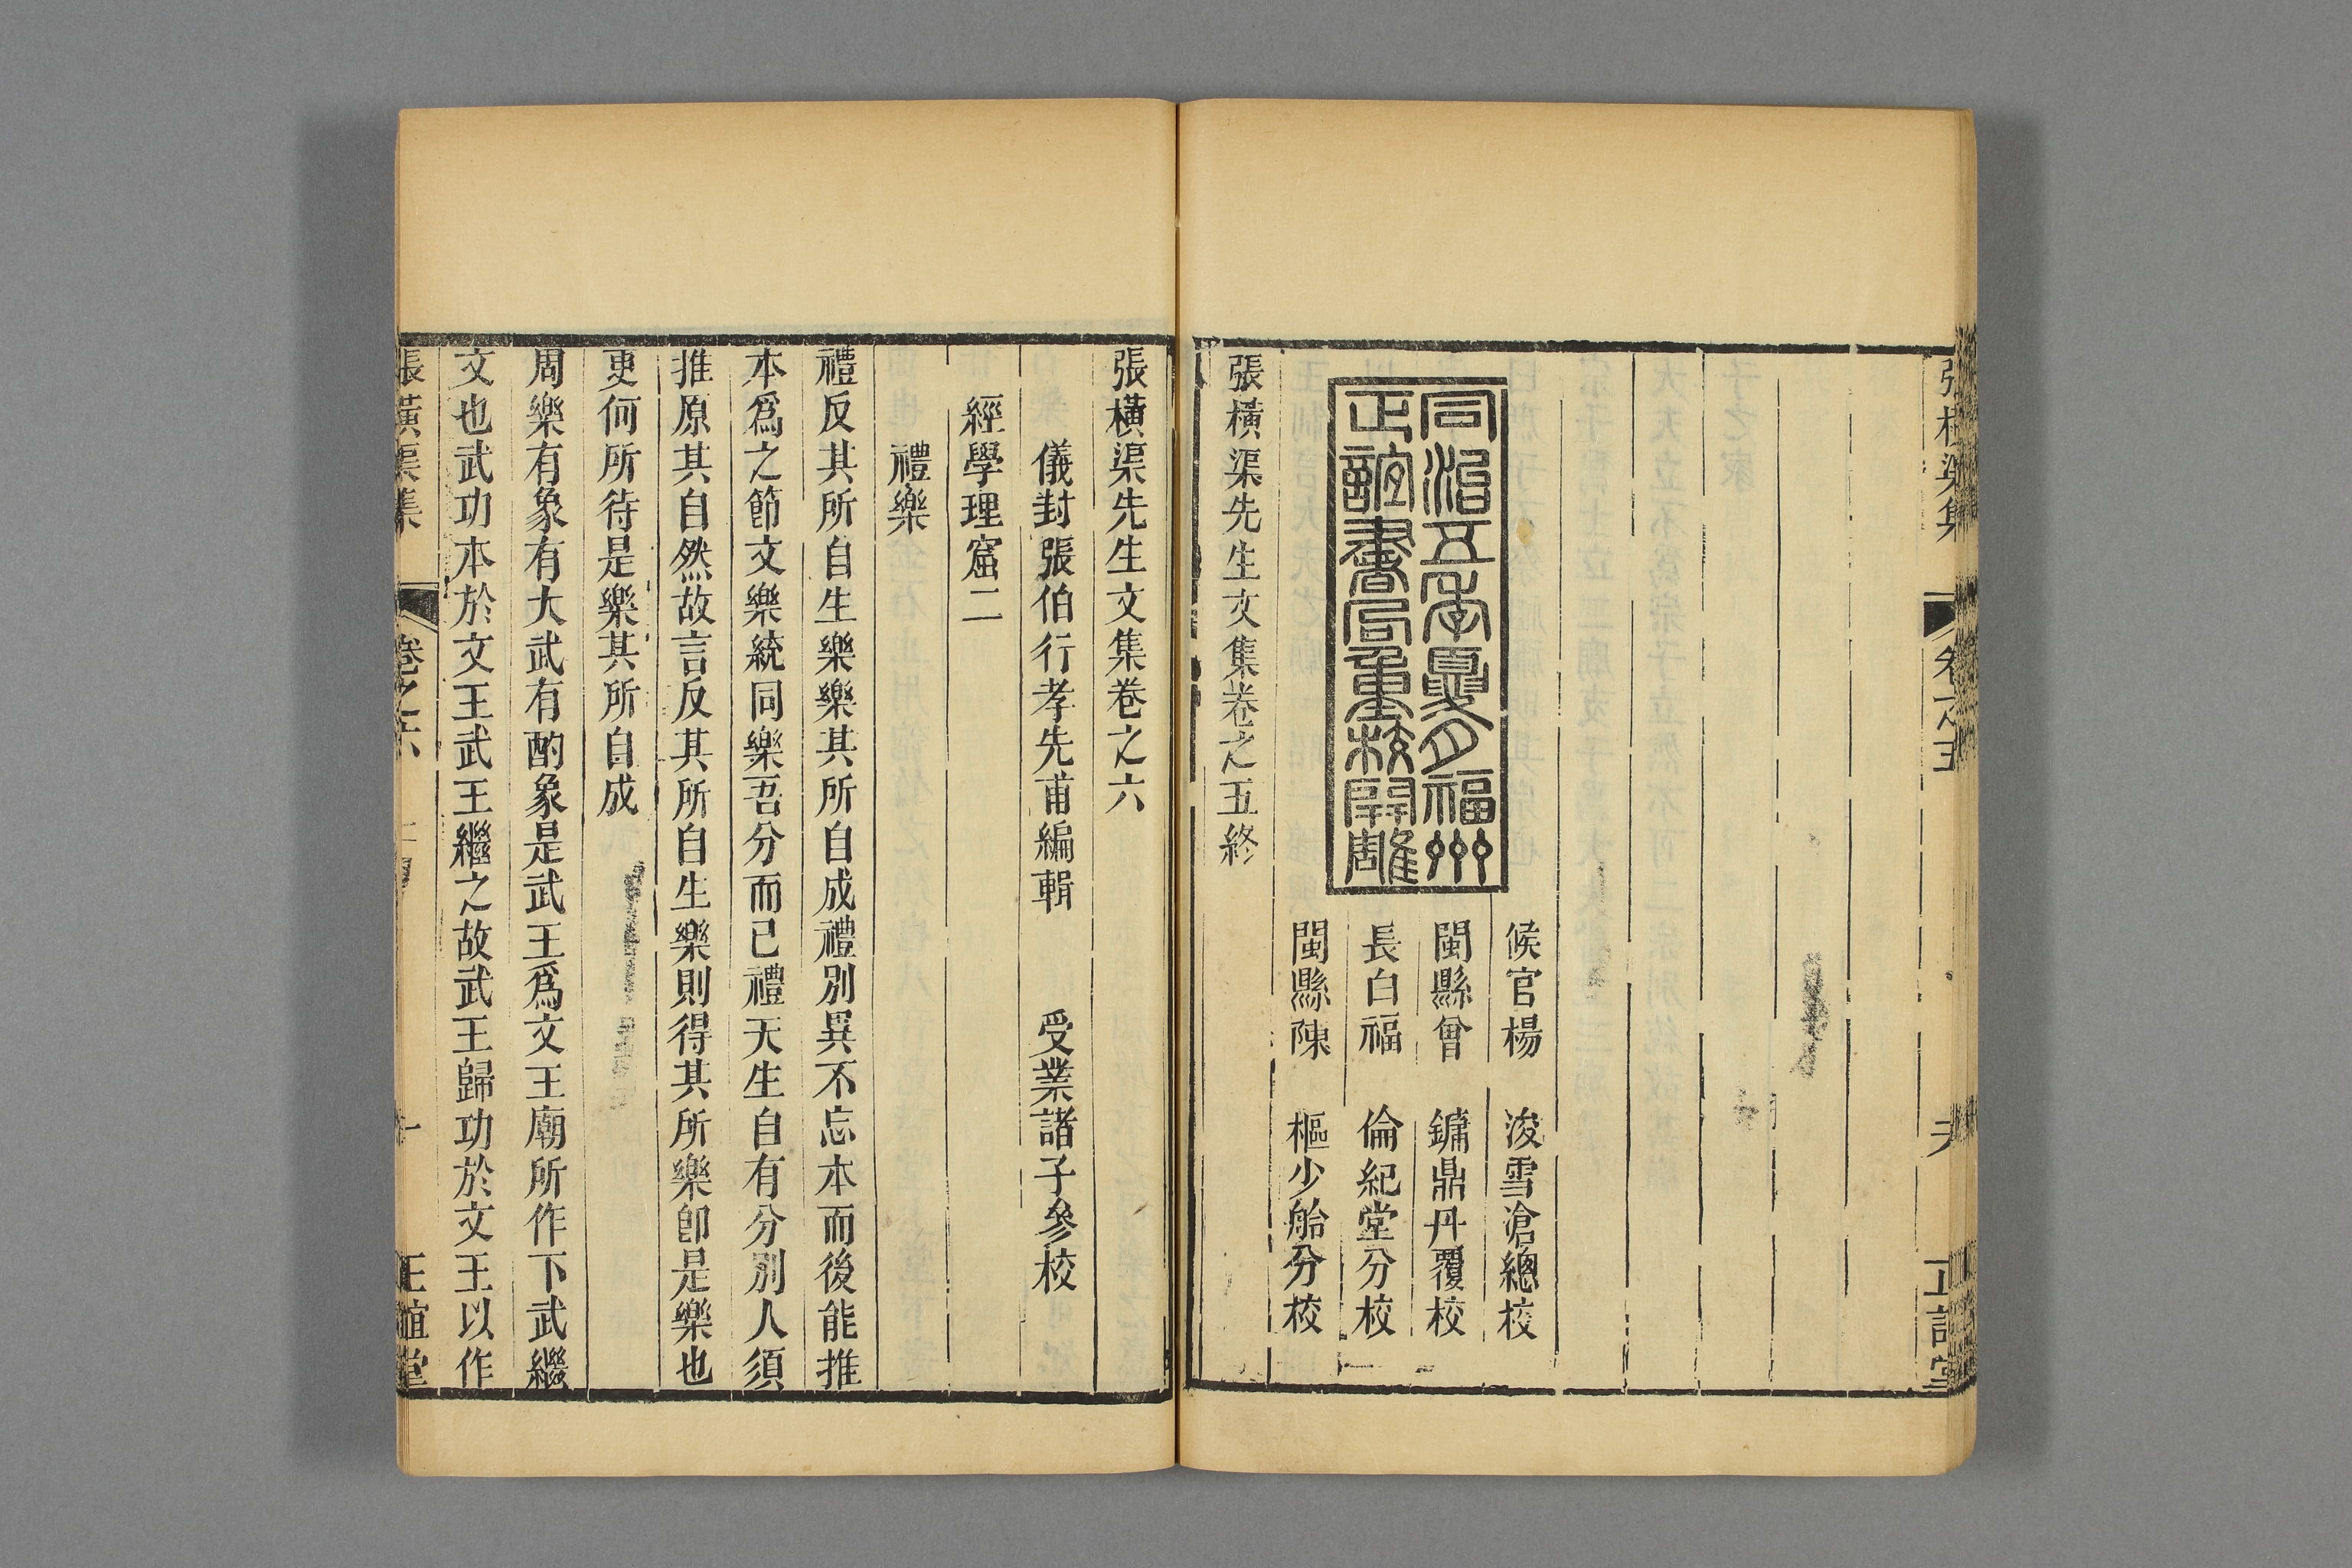 同治五年夏月福州
正誼書局重校開雕
候官楊 浚雪滄總校
閩縣曾 鏞鼎丹覆校
長白福 倫紀堂分校
閩縣陳 樞少舲分校
張橫渠先生文集卷之五終
張橫渠先生文集卷之六
儀封張伯行孝先甫編輯 受業諸子參校
經學理窟二
禮樂
禮反其所自生樂樂其所自成禮別異不忘本而後能推
本爲之節文樂統同樂吾分而已禮天生自有分別人須
推原其自然故言反其所自生樂則得其所樂卽是樂也
更何所待是樂其所自成
周樂有象有大武有酌象是武王爲文王廟所作下武繼
文也武功本於文王武王繼之故武王歸功於文王以作
張橫渠集 卷之六 一 正誼堂